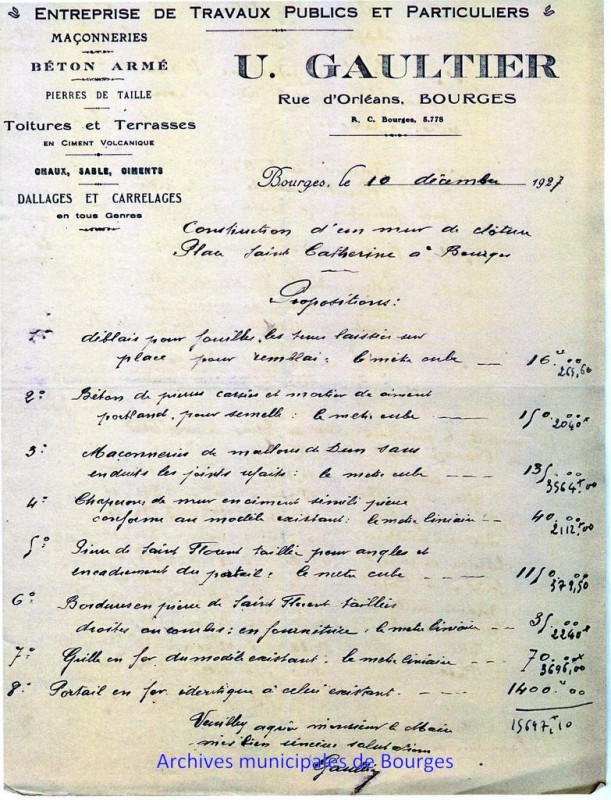 ENTREPRISE DE TRAVAUX PUBLICS ET PARTICULIERS
MAÇONNERIES
BÉTON ARMÉ
PIERRES DE TAILLE
Toitures et Terrasses
EN CIMENT VOLCANIQUE
CHAUX, SABLE, CIMENTS
DALLAGES ET CARRELAGES
en tous Genres
U. GAULTIER
Rue d'Orléans, BOURGES
R. C. Bourges, 5.778
Bourges, le 10 décembre 1927
Construction d'un mur de clôture
Place Saint Catherine à Bourges
Propositions :
1° déblais pour fouilles, les terres laissées sur
place pour remblai : le mètre cube — 16.00
265,60
2° Béton de pierres cassées et mortier de ciment
portland, pour semelle : le mètre cube — 150.00
2040
3° Maçonneries de moellons de Dun sans
enduits les joints refaits : le mètre cube — 135.00
3564.00
4° Chaperons de mur en ciment simili pierre
conforme au modèle existant : le mètre linéaire — 40.00
2112.00
5° Pierre de Saint Florent taillée pour angles et
encadrement du portail : le mètre cube — 1150.00
379,50
6° Bordures en pierre de Saint Florent taillées
droites ou courbes : en fourniture : le mètre linéaire — 35.00
2240
7° Grille en fer du modèle existant : le mètre linéaire — 70.00
3696,00
8° Portail en fer identique à celui existant — 1400.00
15697,10
Veuillez agréer monsieur le Maire
mes bien sincères salutations
Gaultier
Archives municipales de Bourges